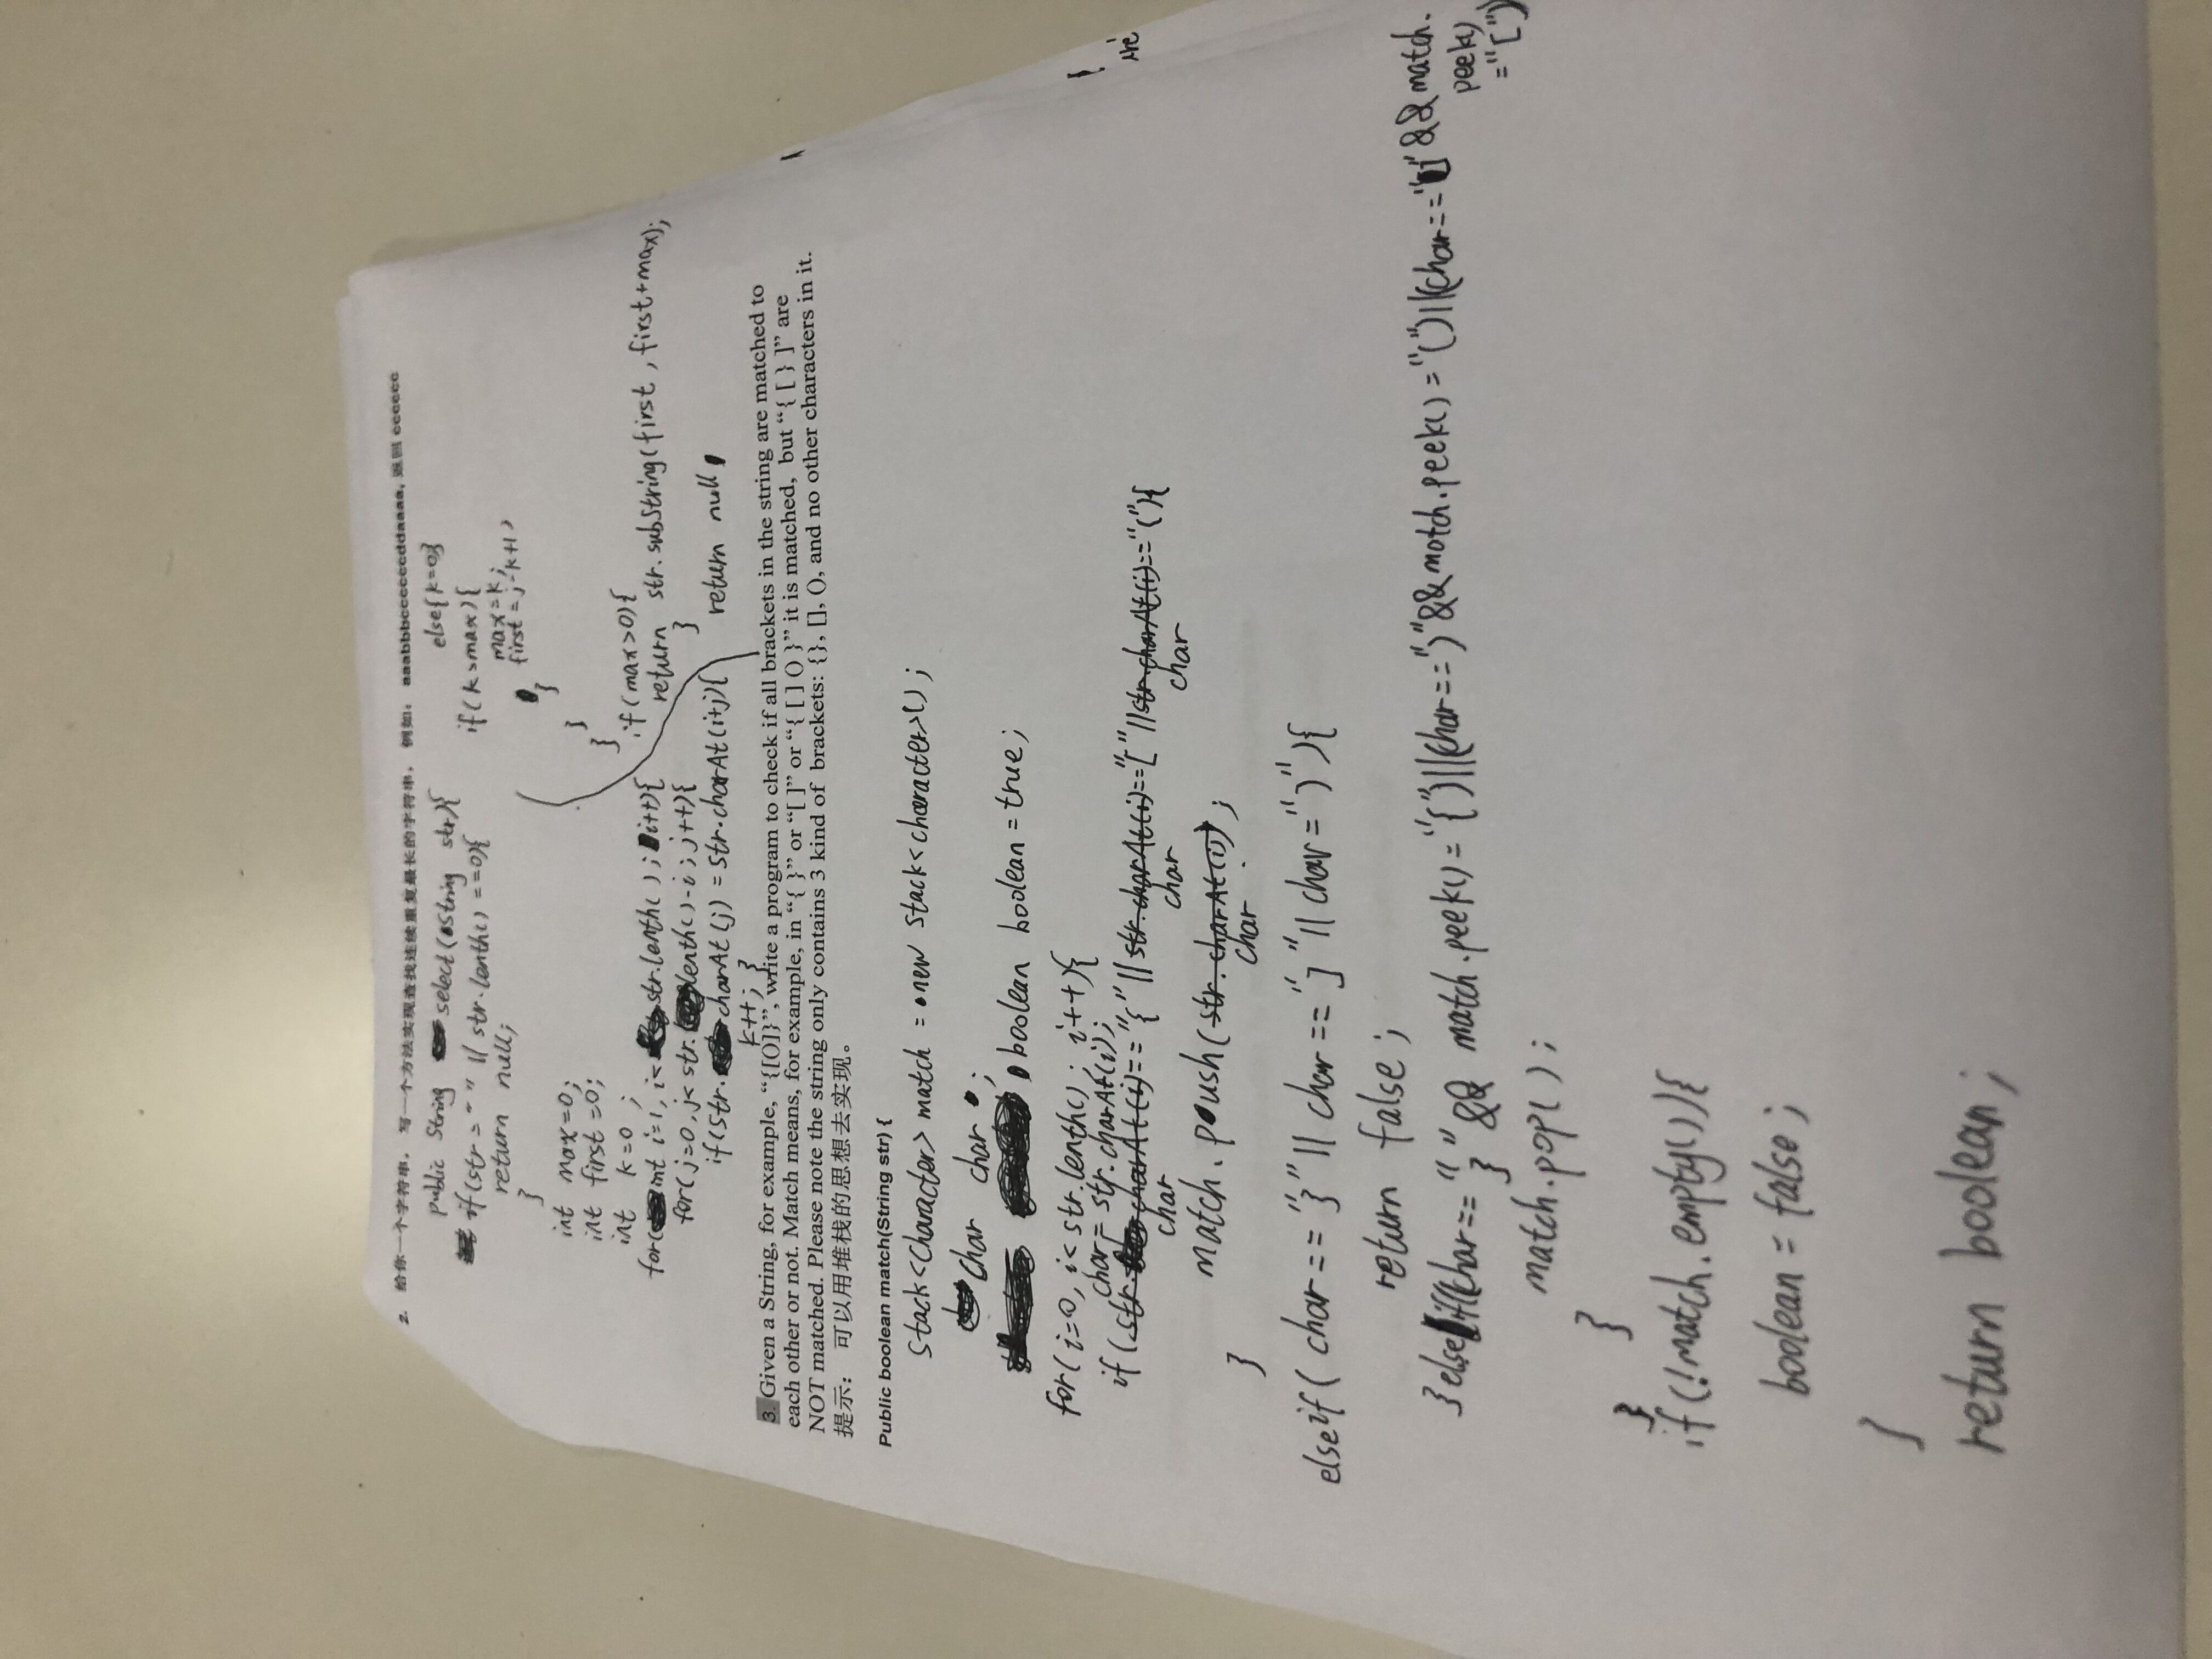 2. 给你一个字符串，写一个方法实现查找连续重复最长的字符串，例如： aaabbbccccccddaaaa, 返回 cccccc
public String select(String str){
if(str=="" || str.lenth()==0){
return null;
}
int max=0;
int first=0;
int k=0;
for(int i=1,i<str.lenth();i++){
for(j=0,j<str.lenth()-i;j++){
if(str.charAt(j)=str.charAt(i+j){
k++; }
else{k=0}
if(k>max){
max=k;
first=j-k+1,
}
}
}
if(max>0){
return str.subString(first,first+max);
}
return null
3. Given a String, for example, “{[O]}”, write a program to check if all brackets in the string are matched to
each other or not. Match means, for example, in “{ }” or “[ ]” or “{ [ ] O }” it is matched, but “{ [ } ]” are
NOT matched. Please note the string only contains 3 kind of brackets: {}, [], (), and no other characters in it.
提示： 可以用堆栈的思想去实现。
Public boolean match(String str) {
Stack<Character> match = new Stack<character>();
char char;
boolean boolean=true;
for(i=0,i<str.lenth(); i++){
char=str.charAt(i);
if(char=="{"||char=="["||char=="("){
match.push(char);
}
elseif(char=="}"||char=="]"||char=")"){
return false;
}elseif((char=="}"&& match.peek()="{")||(char==")"&&match.peek()="(")||(char=="]"&&match.
peek()
="[")
match.pop();
}
}
if(!match.empty()){
boolean=false;
}
return boolean;